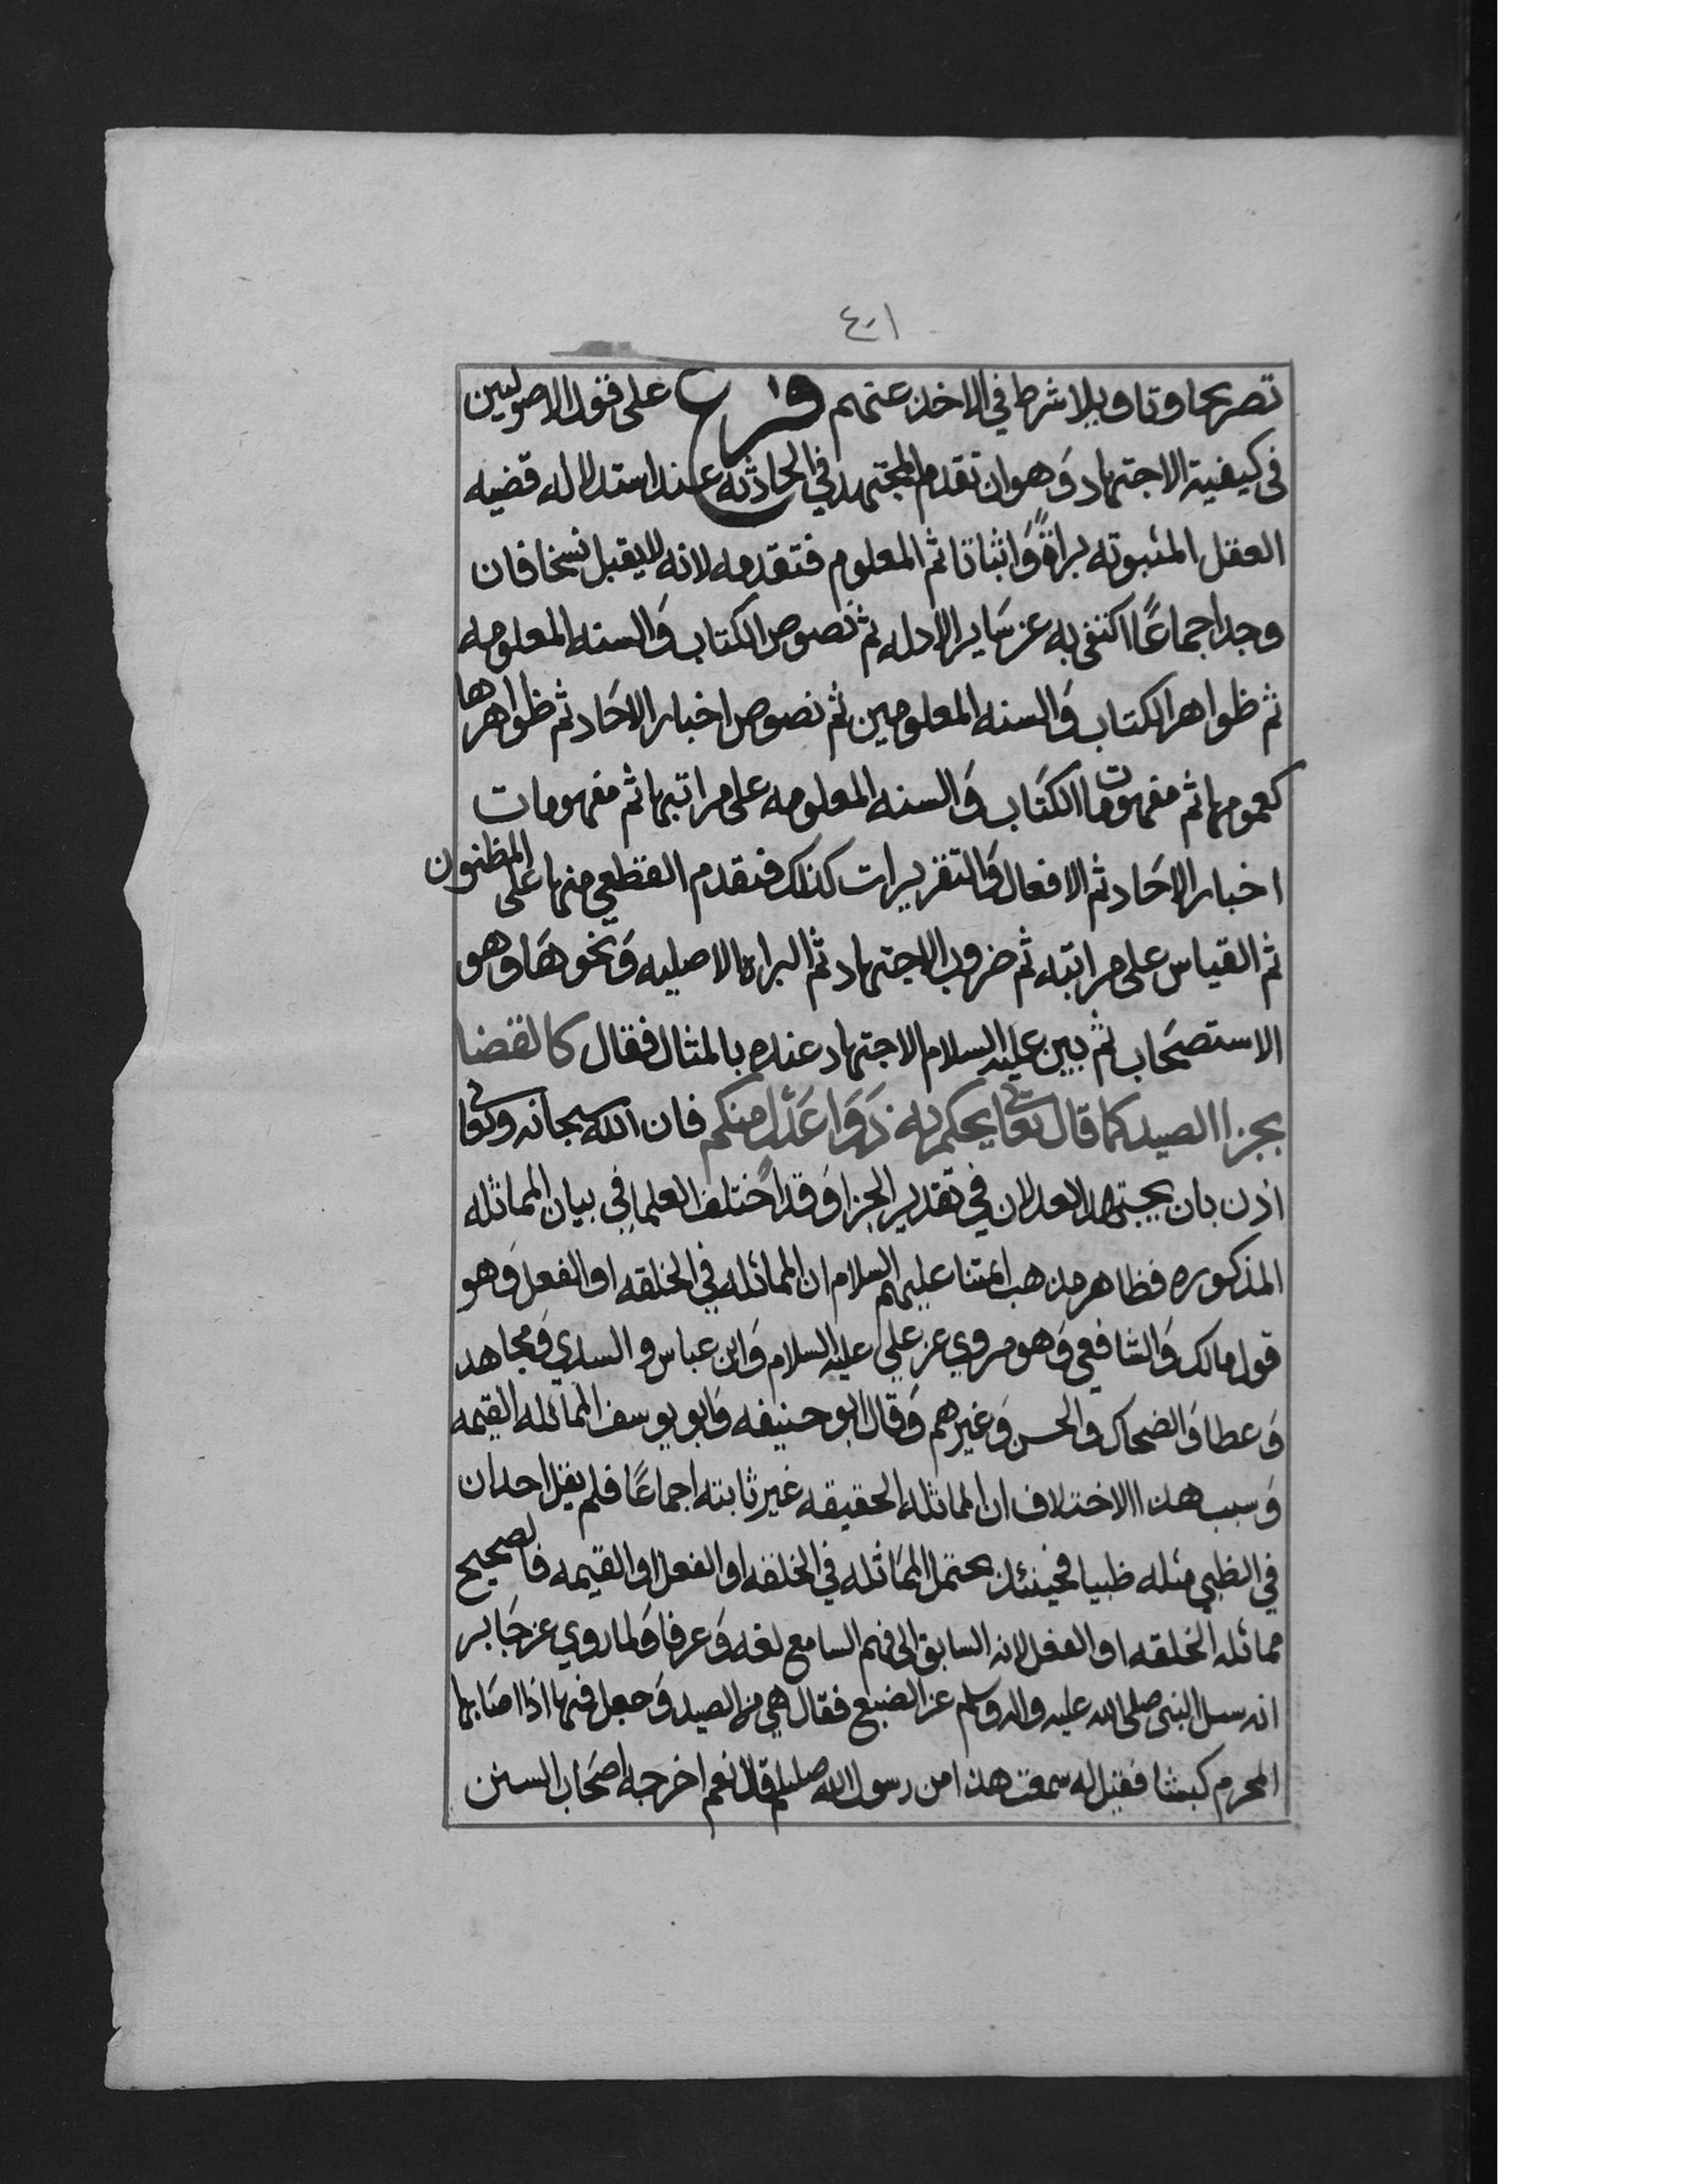 ٤٠١
تصريحا وتاويلا شرط في الاخذ عنهم فرع على قول الاصوليين
في كيفية الاجتهاد وَهو ان تقدم المجتهد في الحادثة عند استدلاله قضيه
العقل المثبوته براةً وَاثباتا ثم المعلوم فتقدمه لانه لا يقبل نسخا فان
وجد اجماعًا اكتفى به عن سَاير الادله ثم نصوص الكتاب وَالسنه المعلومه
ثم ظواهر الكتاب وَالسنه المعلومين ثم نصوص اخبار الاحَاد ثم ظواهرها
كعمومها ثم مفهومات الكتَاب وَالسنه المعلومه على مراتبها ثم مفهومات
اخبار الاحَاد ثم الافعال وَالتقريرات كذلك فتقدم القطعي منها على المظنون
ثم القياس على مراتبه ثم ضروب الاجتهاد ثم البراه الاصليه وَنحوهَا وهو
الاستصحَاب ثم بين عليه السلام الاجتهاد عنده بالمثال فقال كالقضا
بجزا الصيد كما قال تعا يحكم به ذَوَا عَدْل منكم فان الله سبحانه وتعا
اذن بان يجتهد العدلان في تقدير الجزا وَقد اختلف العلما في بيان المماثله
المذكوره فظاهر مذهب ائمتنا عليهم السلام ان المماثله في الخلقه او الفعل وَهو
قول مالك وَالشافعي وَهو مروي عن علي عليه السلام وَابن عباس و السدي وَمجاهد
وَعطا وَالضحاك والحسن وَغيرهم وَقال ابو حنيفه وَابو يوسف المماثله القيمه
وَسبب هذا الاختلاف ان المماثله الحقيقه غير ثابته اجماعًا فلم يقل احد ان
في الظبي مثله ظبيا فحينئذ يحتمل المَاثله في الخلقه او الفعل او القيمه فالصحيح
مماثله الخلقه او الفعل لانه السابق الى فهم السامع لغه وَعرفا وَلما روي عن جَابر
انه سىل النبي صلى الله عليه واله وسلم عن الضبع فقال هي من الصيد وَجعل فيها اذا اصَابها
المحرم كبشا فقيل له سمعت هذا من رسول الله صللم قال نعم اخرجه اصحَاب السنن